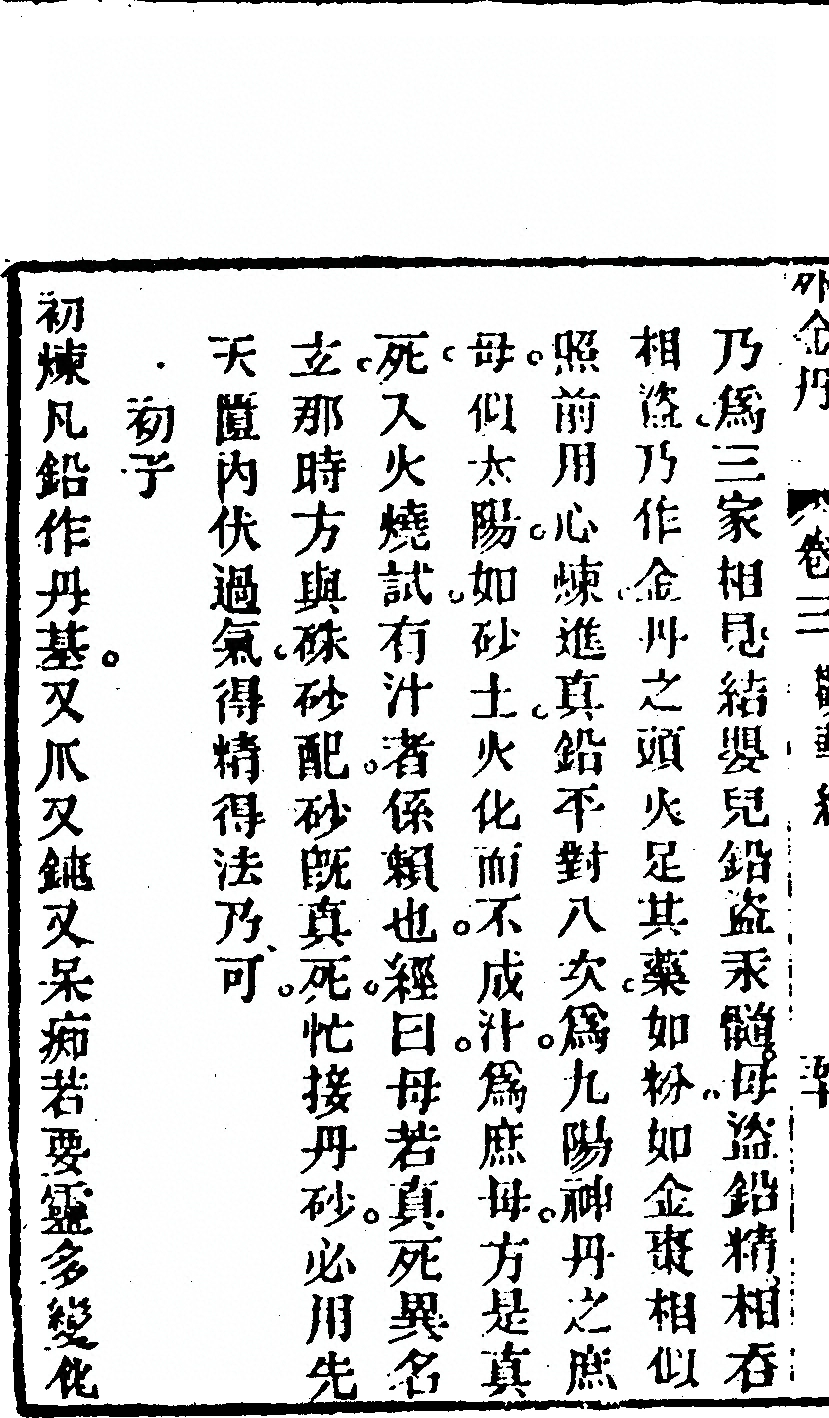 外金丹 卷三
乃爲三家相見結嬰兒鉛盜汞髓母盜鉛精相吞
相盜乃作金丹之頭火足其藥如粉如金棗相似
照前用心煉進真鉛平對八次爲九陽神丹之庶
母似太陽如砂土火化而不成汁爲庶母方是真
死入火燒試有汁者係賴也經曰母若真死異名
立那時方與硃砂配砂旣真死忙接丹砂必用先
天匱內伏過氣得精得法乃可
初子
初煉凡鉛作丹基又爪又鈍又呆痴若要靈多變化